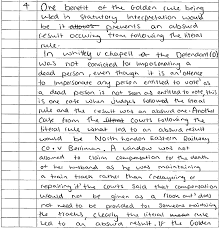 4 One benefit of the Golden rule being
used in statutory interpretation would
be it prevents an absurd
result occuring from following the literal
rule.
In Whitely v Chapell the Defendant(D)
was not convicted for impersonating a
dead person, even though it is an offence
to impersonate any person entitled to vote as
a dead person is not soon as entitled to vote, this
is one case when judges followed the literal
rule and the result was an absurd one. Another
case from the courts following the
literal rule what led to an absurd result
would be North London Eastern Railway
co. v Berriman, A window was not
allowed to claim compensation for the death
of her husband as he was maintaining
a train track rather than
repairing it the courts said that compensation
would not be given as a look out does
not need to be provided for someone maintaining
the tracks, clearly the literal rule
led to an absurd result, if the Golden